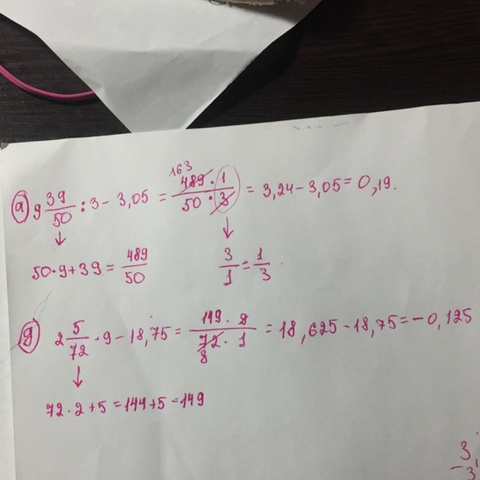 а) 9 39/50 : 3 - 3,05 = 489 · 1 / 50 · 3 = 3,24 - 3,05 = 0,19.
163
↓ ↓
50 · 9 + 39 = 489/50 3/1 = 1/3
д) 2 5/72 · 9 - 18,75 = 149 · 9 / 72 · 1 = 18,625 - 18,75 = -0,125
8
↓
72 · 2 + 5 = 144 + 5 = 149
3,
- 3,